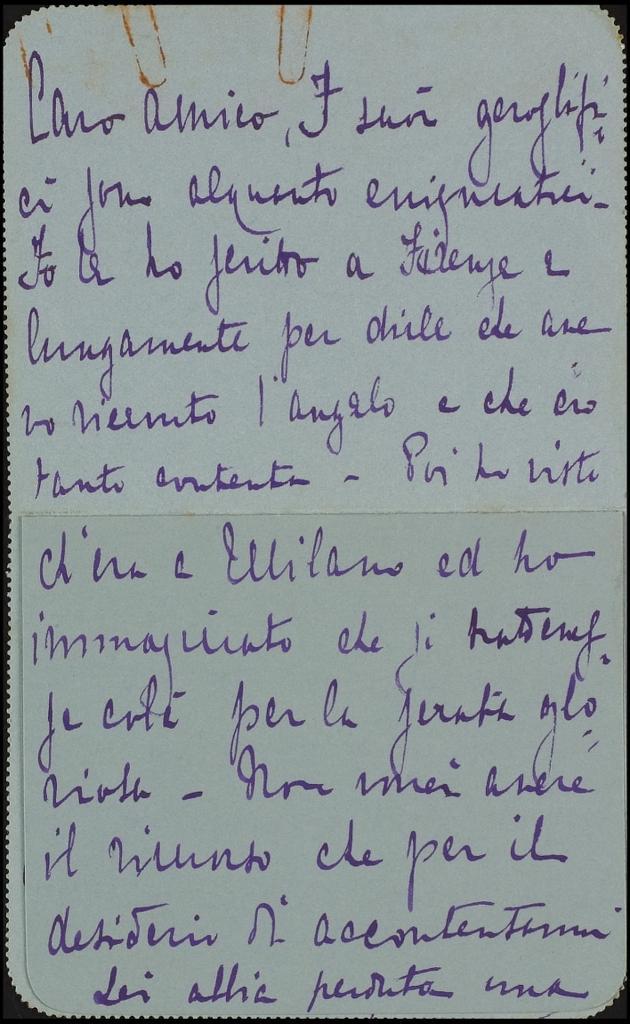 Caro amico, I suoi geroglifi-
ci sono alquanto enigmatici-
Io le ho scritto a Firenze e
lungamente per dirle che ave
vo ricevuto l'angelo e che ero
tanto contenta - Poi ho visto
ch'era a Milano ed ho
immaginato che si trattenes-
se colà per la serata glo-
riosa - Non vorrei avere
il rimorso che per il
desiderio di accontentarmi
Lei abbia perduta una